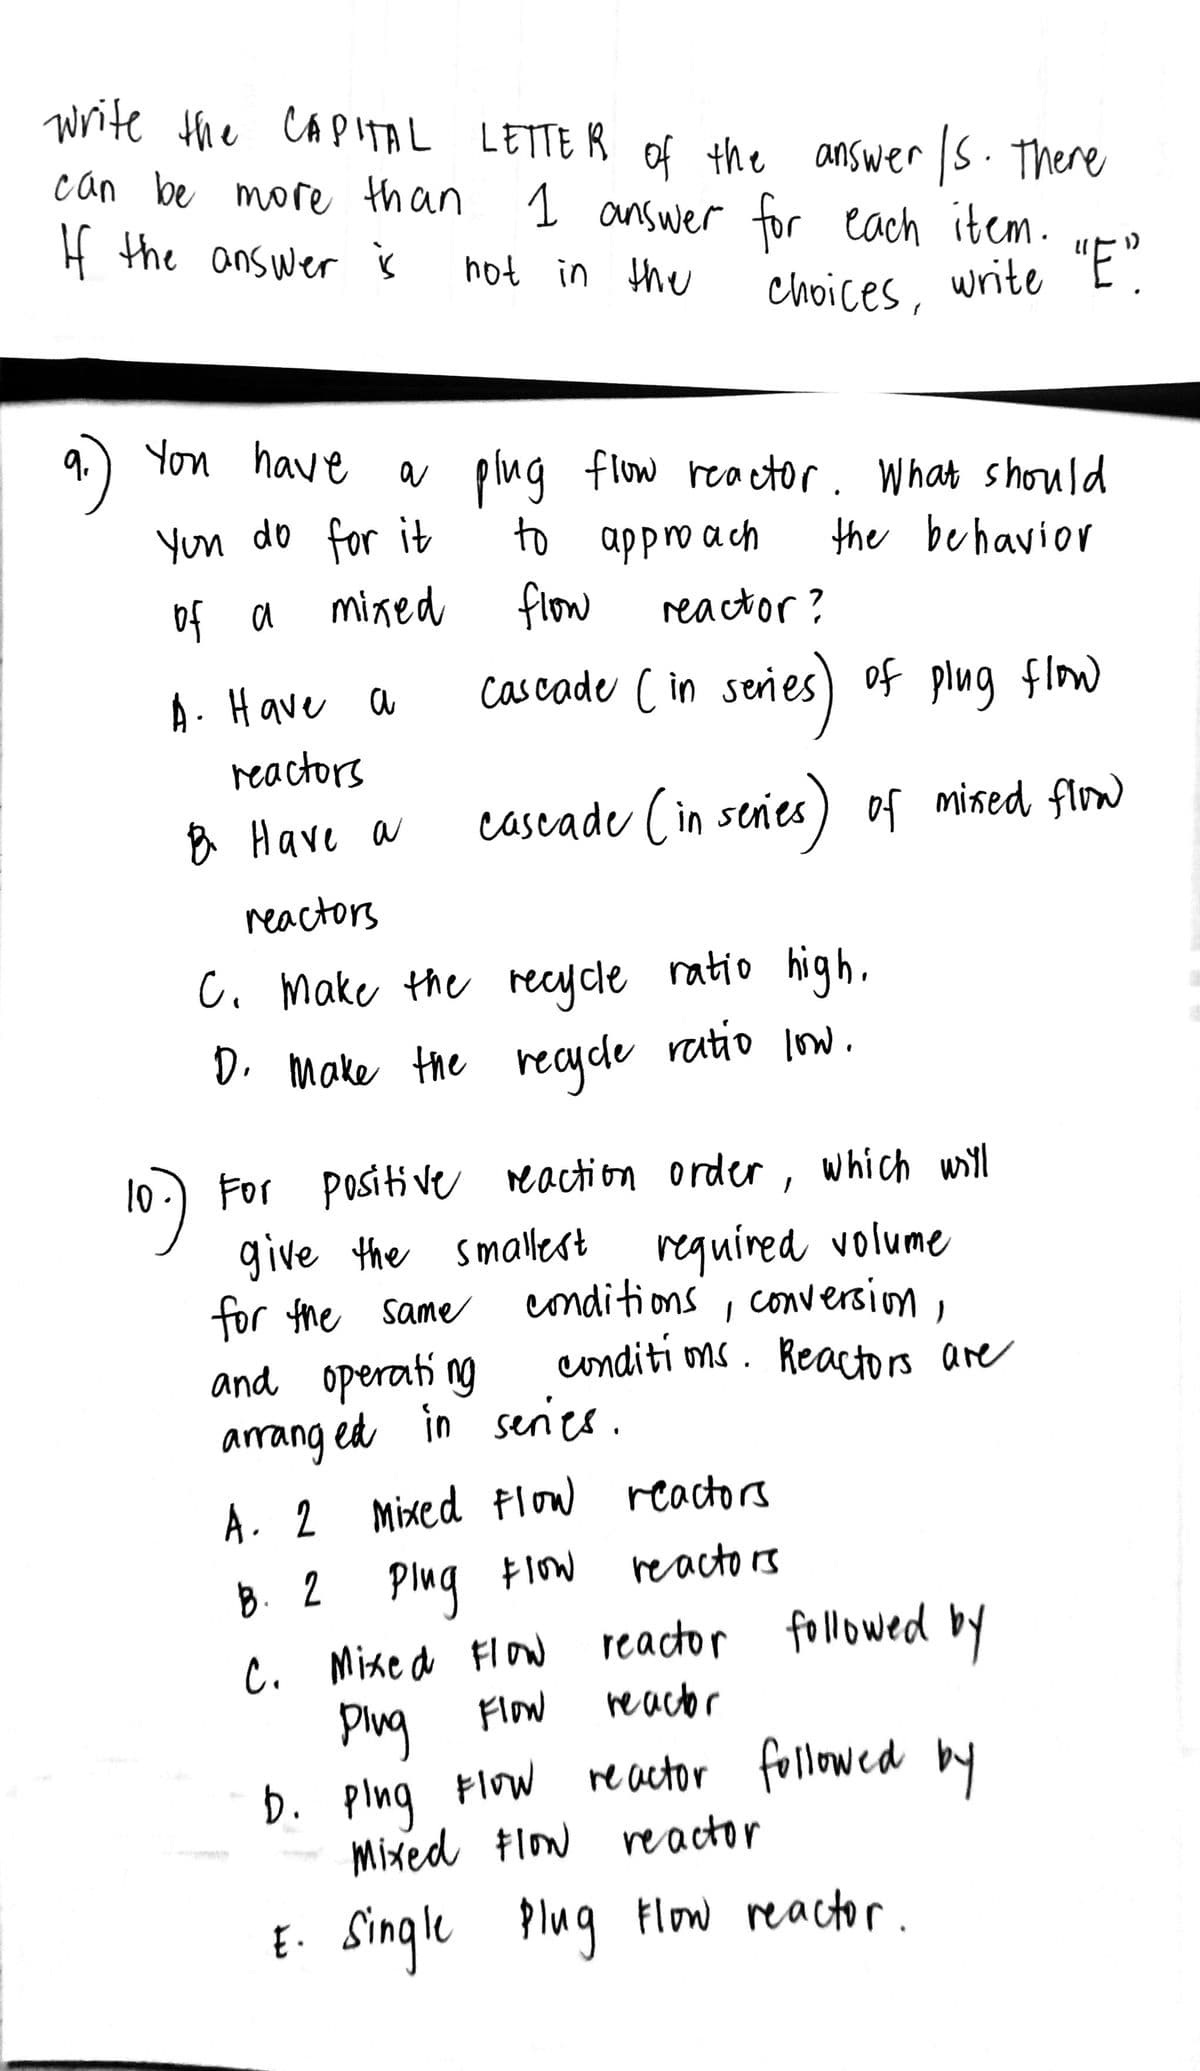 write the CAPITAL LETTER of the answer/s. There
can be more than 1 answer for each item.
If the answer is not in the choices, write "E".
9.) You have a plug flow reactor. What should
you do for it to approach the behavior
of a mixed flow reactor?
A. Have a cascade (in series) of plug flow
reactors
B. Have a cascade (in series) of mixed flow
reactors
C. Make the recycle ratio high.
D. Make the recycle ratio low.
10.) For positive reaction order, which will
give the smallest required volume
for the same conditions, conversion,
and operating conditions. Reactors are
arranged in series.
A. 2 Mixed Flow reactors
B. 2 Plug Flow reactors
C. Mixed Flow reactor followed by
Plug Flow reactor
D. Plug Flow reactor followed by
Mixed Flow reactor
E. Single Plug Flow reactor.